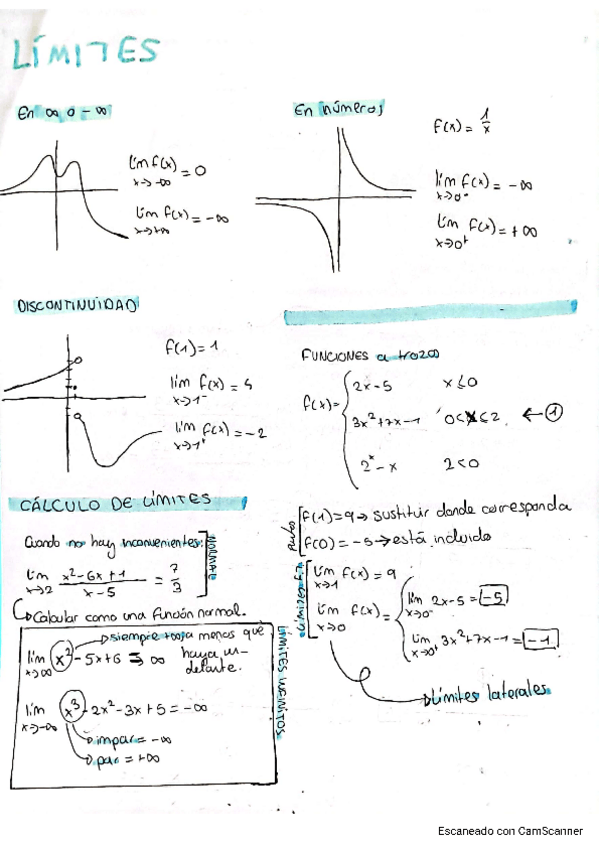 LÍMITES
En ∞ o -∞
lim f(x) = 0
x→-∞
lim f(x) = -∞
x→+∞
En números
f(x) = 1/x
lim f(x) = -∞
x→0⁻
lim f(x) = +∞
x→0⁺
DISCONTINUIDAD
f(1) = 1
lim f(x) = 4
x→1⁻
lim f(x) = -2
x→1⁺
FUNCIONES a trozos
f(x) =
2x-5 x≤0
3x²+7x-1 0<x≤2 ←①
2ˣ-x 2<0
CÁLCULO DE LÍMITES
Cuando no hay inconvenientes:
lim x²-6x+1 / x-5 = 7/3
x→2
Calcular como una función normal.
siempre + menos que
haya un -
delante.
lim x²-5x+6 = ∞
x→∞
lim x³-2x²-3x+5 = -∞
x→-∞
impar = -∞
par = +∞
LÍMITES INFINITOS
Punto
f(1)=9→ sustituir donde corresponda
f(0)=-5→está incluido
lim f(x) = 9
x→1
lim f(x) =
x→0
lim 2x-5 = -5
x→0⁻
lim 3x²+7x-1 = -1
x→0⁺
Límites laterales
Escaneado con CamScanner